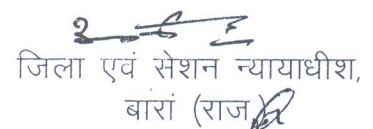 जिला एवं सेशन न्यायाधीश,
बारां (राज)